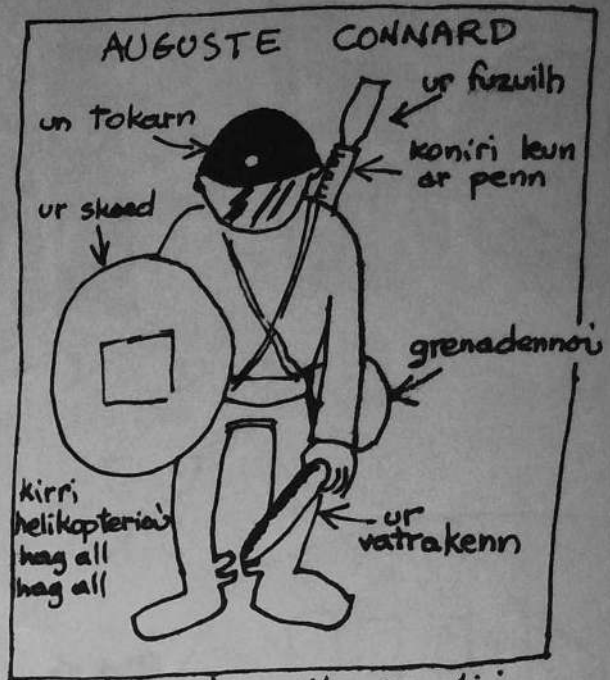 AUGUSTE CONNARD
un tokarn
ur fuzuilh
koniri leun
ar penn
ur skoed
grenadennoù
kirri
helikopterioù
hag all
hag all
ur
vatrakenn